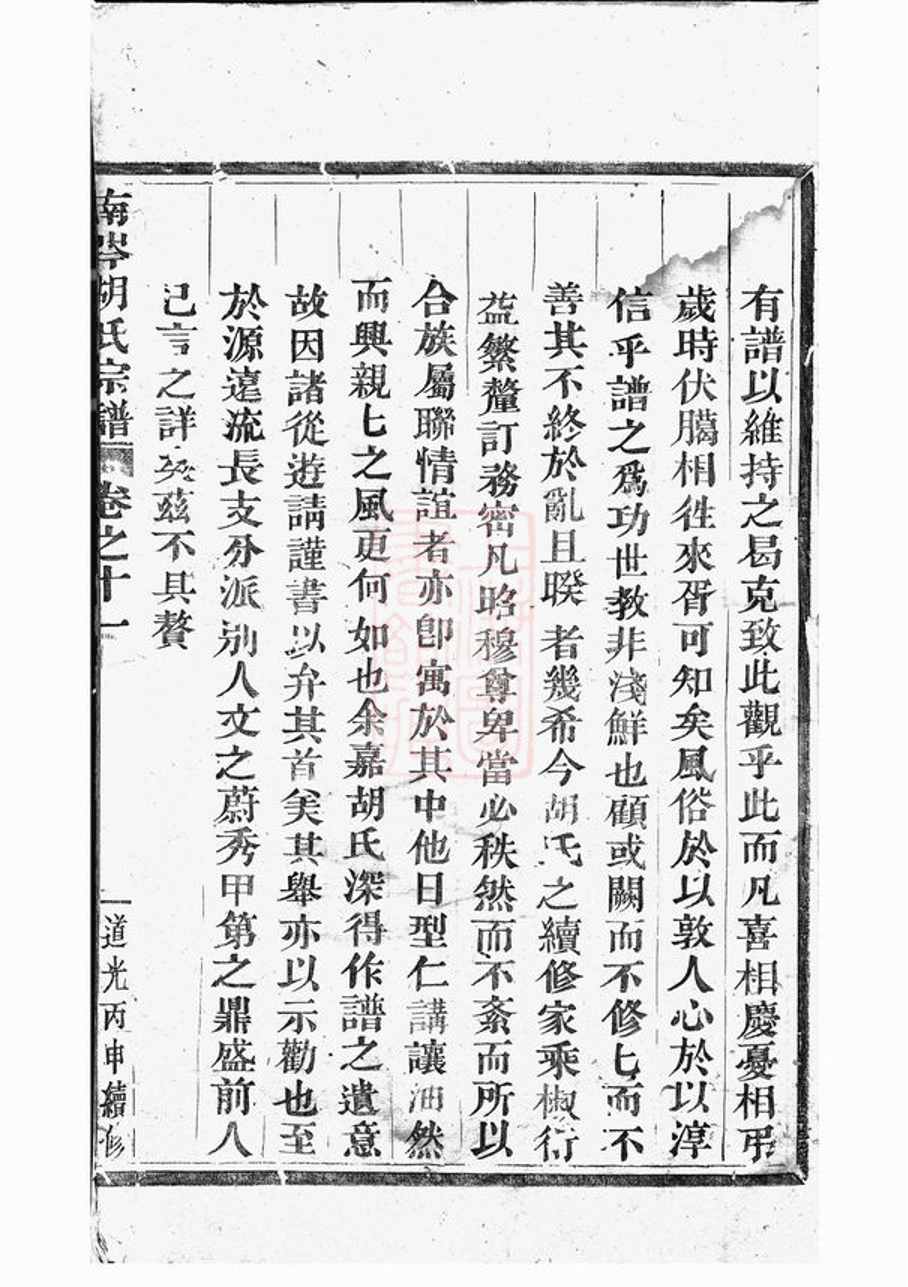 有譜以維持之曷克致此觀乎此而凡喜相慶憂相弔
歲時伏臈相徃來胥可知矣風俗於以敦人心於以淳
信乎譜之爲功世教非淺鮮也顧或闕而不修匕而不
善其不終於亂且暌者幾希今胡氏之續修家乘椒衍
益繁釐訂務密凡昭穆尊卑當必秩然而不紊而所以
合族屬聯情誼者亦卽寓於其中他日型仁講讓油然
而興親匕之風更何如也余嘉胡氏深得作譜之遺意
故因諸從遊請謹書以弁其首矣其舉亦以示勸也至
於源遠流長支分派别人文之蔚秀甲第之鼎盛前人
已言之詳矣茲不具贅
南岑胡氏宗譜 卷之十一 道光丙申續修